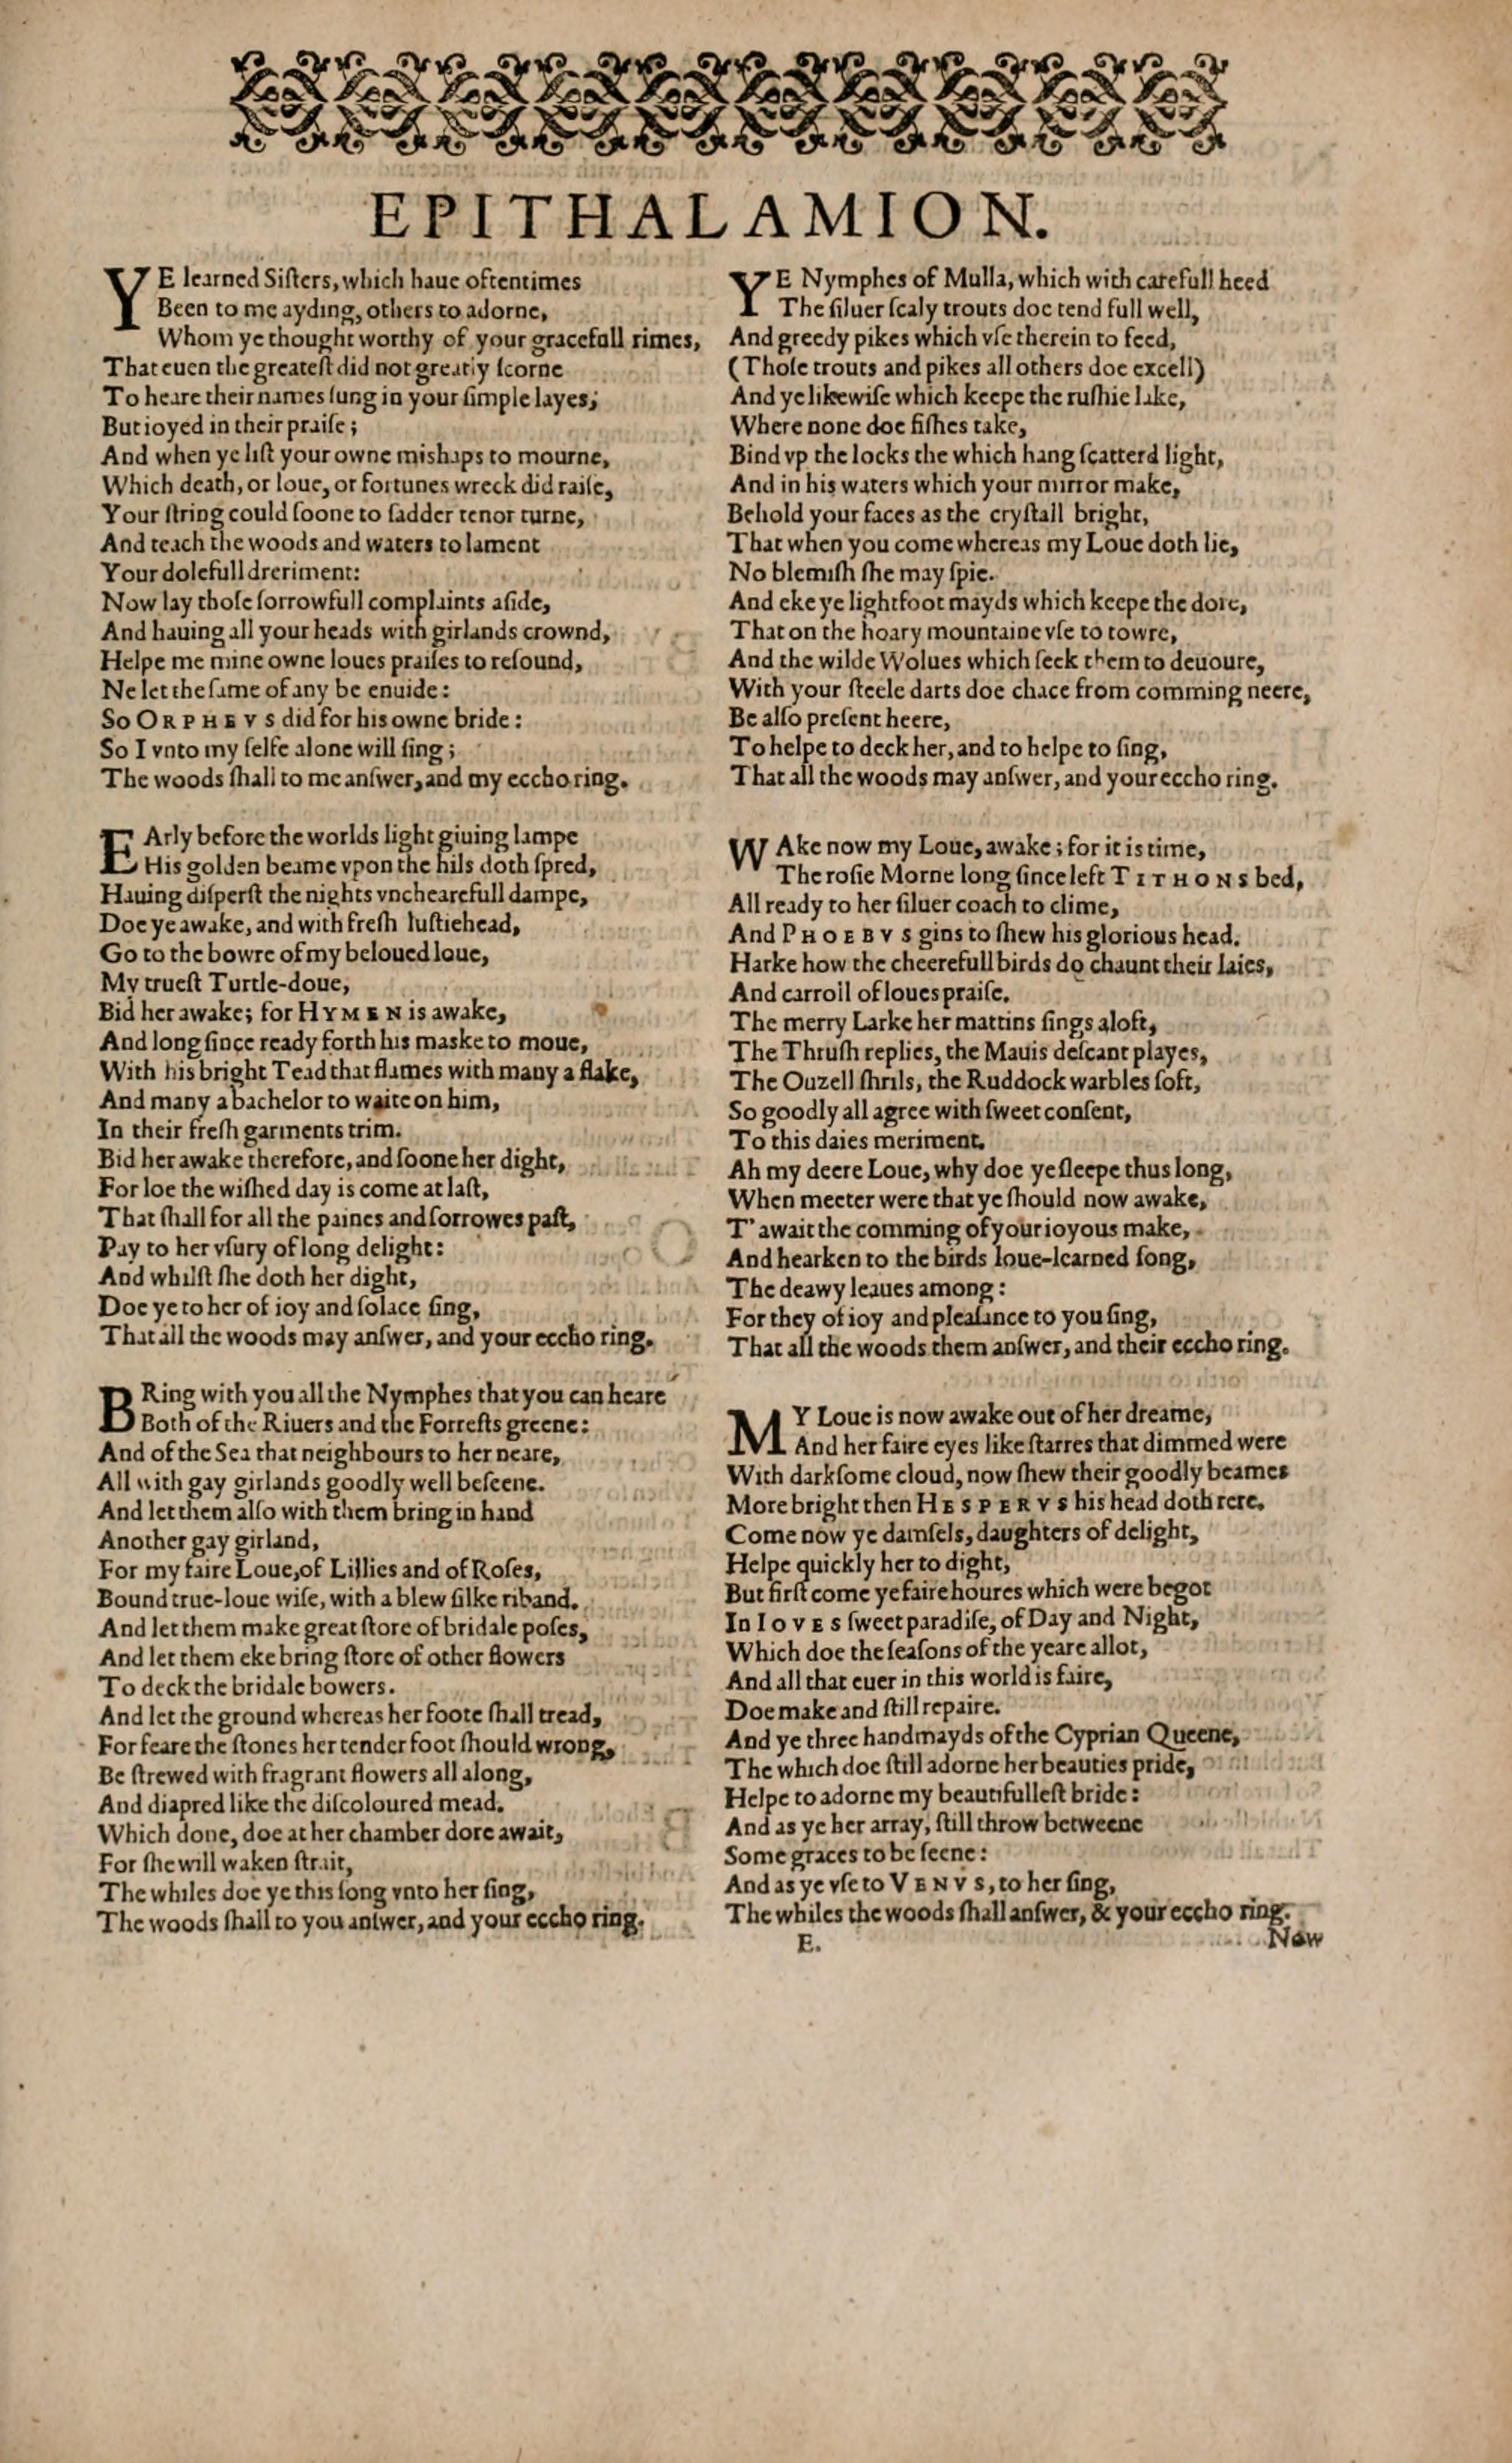 EPITHALAMION.
YE learned Siſters, which haue oftentimes
Been to me ayding, others to adorne,
Whom ye thought worthy of your gracefull rimes,
That euen the greateſt did not greatly ſcorne
To heare their names ſung in your ſimple layes,
But ioyed in their praiſe;
And when ye liſt your owne mishaps to mourne,
Which death, or loue, or fortunes wreck did raiſe,
Your ſtring could ſoone to ſadder tenor turne,
And teach the woods and waters to lament
Your dolefull dreriment:
Now lay thoſe ſorrowfull complaints aſide,
And hauing all your heads with girlands crownd,
Helpe me mine owne loues praiſes to reſound,
Ne let the ſame of any be enuide:
So ORPHEVS did for his owne bride:
So I vnto my ſelfe alone will ſing;
The woods ſhall to me anſwer, and my eccho ring.
EArly before the worlds light giuing lampe
His golden beame vpon the hils doth ſpred,
Hauing diſperſt the nights vnchearefull dampe,
Doe ye awake, and with freſh luſtiehead,
Go to the bowre of my beloued loue,
My trueſt Turtle-doue,
Bid her awake; for HYMEN is awake,
And long ſince ready forth his maske to moue,
With his bright Tead that flames with many a flake,
And many a bachelor to waite on him,
In their freſh garments trim.
Bid her awake therefore, and ſoone her dight,
For loe the wiſhed day is come at laſt,
That ſhall for all the paines and ſorrowes paſt,
Pay to her vſury of long delight:
And whilſt ſhe doth her dight,
Doe ye to her of ioy and ſolace ſing,
That all the woods may anſwer, and your eccho ring.
BRing with you all the Nymphes that you can heare
Both of the Riuers and the Forreſts greene:
And of the Sea that neighbours to her neare,
All with gay girlands goodly well beſeene.
And let them alſo with them bring in hand
Another gay girland,
For my faire Loue, of Lillies and of Roſes,
Bound true-loue wiſe, with a blew ſilke riband.
And let them make great ſtore of bridale poſes,
And let them eke bring ſtore of other flowers
To deck the bridale bowers.
And let the ground whereas her foote ſhall tread,
For feare the ſtones her tender foot ſhould wrong,
Be ſtrewed with fragrant flowers all along,
And diapred like the diſcoloured mead.
Which done, doe at her chamber dore await,
For ſhe will waken ſtrait,
The whiles doe ye this ſong vnto her ſing,
The woods ſhall to you anſwer, and your eccho ring.
YE Nymphes of Mulla, which with carefull heed
The ſiluer ſcaly trouts doe tend full well,
And greedy pikes which vſe therein to feed,
(Thoſe trouts and pikes all others doe excell)
And ye likewiſe which keepe the ruſhie lake,
Where none doe fiſhes take,
Bind vp the locks the which hang ſcatterd light,
And in his waters which your mirror make,
Behold your faces as the cryſtall bright,
That when you come whereas my Loue doth lie,
No blemiſh ſhe may ſpie.
And eke ye lightfoot mayds which keepe the dore,
That on the hoary mountaine vſe to towre,
And the wilde Wolues which ſeek them to deuoure,
With your ſteele darts doe chace from comming neere,
Be alſo preſent heere,
To helpe to deck her, and to helpe to ſing,
That all the woods may anſwer, and your eccho ring.
WAke now my Loue, awake; for it is time,
The roſie Morne long ſince left TITHONS bed,
All ready to her ſiluer coach to clime,
And PHOEBVS gins to ſhew his glorious head.
Harke how the cheerefull birds do chaunt their laies,
And carroll of loues praiſe.
The merry Larke her mattins ſings aloft,
The Thruſh replies, the Mauis deſcant playes,
The Ouzell ſhrils, the Ruddock warbles ſoft,
So goodly all agree with ſweet conſent,
To this daies meriment.
Ah my deere Loue, why doe ye ſleepe thus long,
When meeter were that ye ſhould now awake,
T'await the comming of your ioyous make,
And hearken to the birds loue-learned ſong,
The deawy leaues among:
For they of ioy and pleaſance to you ſing,
That all the woods them anſwer, and their eccho ring.
MY Loue is now awake out of her dreame,
And her faire eyes like ſtarres that dimmed were
With darkſome cloud, now ſhew their goodly beames
More bright then HESPERVS his head doth rere.
Come now ye damſels, daughters of delight,
Helpe quickly her to dight,
But firſt come ye faire houres which were begot
In IOVES ſweet paradiſe, of Day and Night,
Which doe the ſeaſons of the yeare allot,
And all that euer in this world is faire,
Doe make and ſtill repaire.
And ye three handmayds of the Cyprian Queene,
The which doe ſtill adorne her beauties pride,
Helpe to adorne my beautifulleſt bride:
And as ye her array, ſtill throw betweene
Some graces to be ſeene:
And as ye vſe to VENVS, to her ſing,
The whiles the woods ſhall anſwer, & your eccho ring.
E.
Now